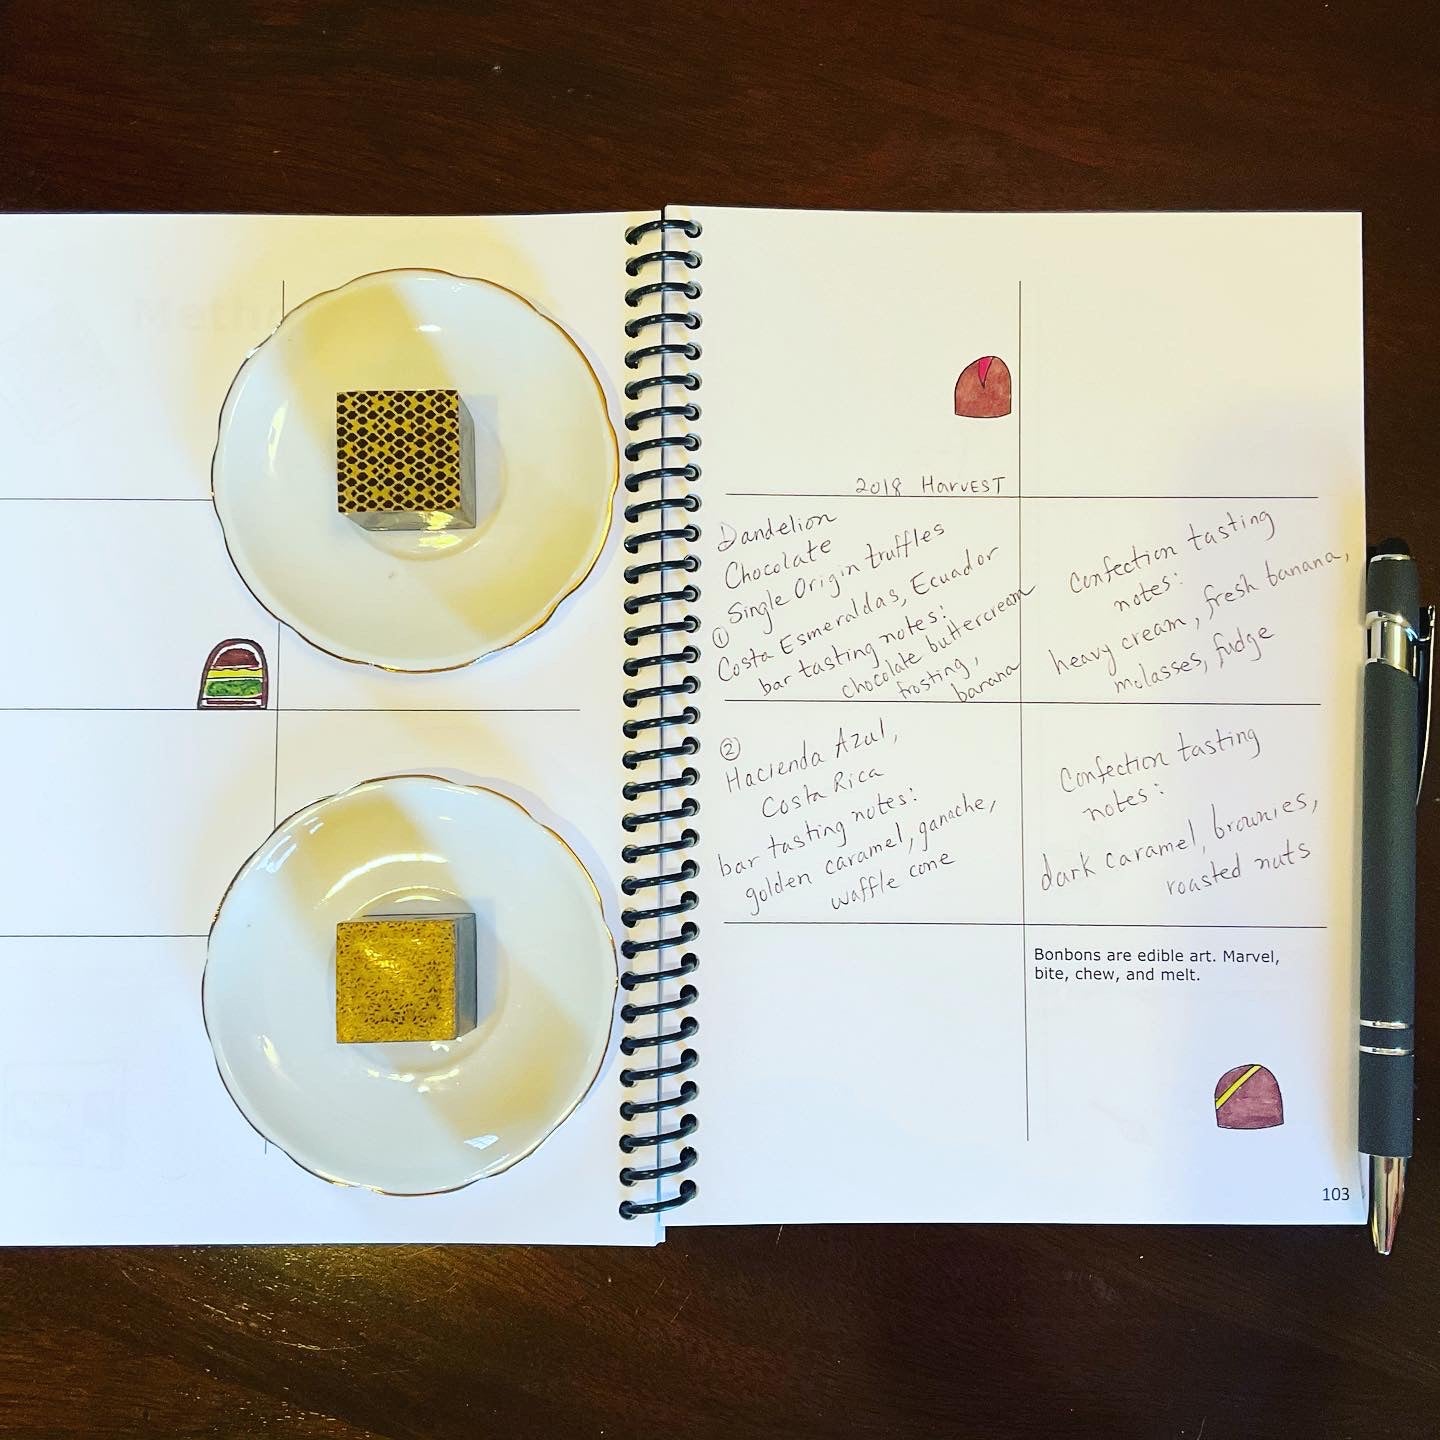 Meth
2018 Harvest
Dandelion
Chocolate
Single Origin truffles
① Costa Esmeraldas, Ecuador
bar tasting notes:
chocolate buttercream
frosting,
banana
Confection tasting
notes:
heavy cream, fresh banana,
molasses, fudge
②
Hacienda Azul,
Costa Rica
bar tasting notes:
golden caramel, ganache,
waffle cone
Confection tasting
notes:
dark caramel, brownies,
roasted nuts
Bonbons are edible art. Marvel,
bite, chew, and melt.
103